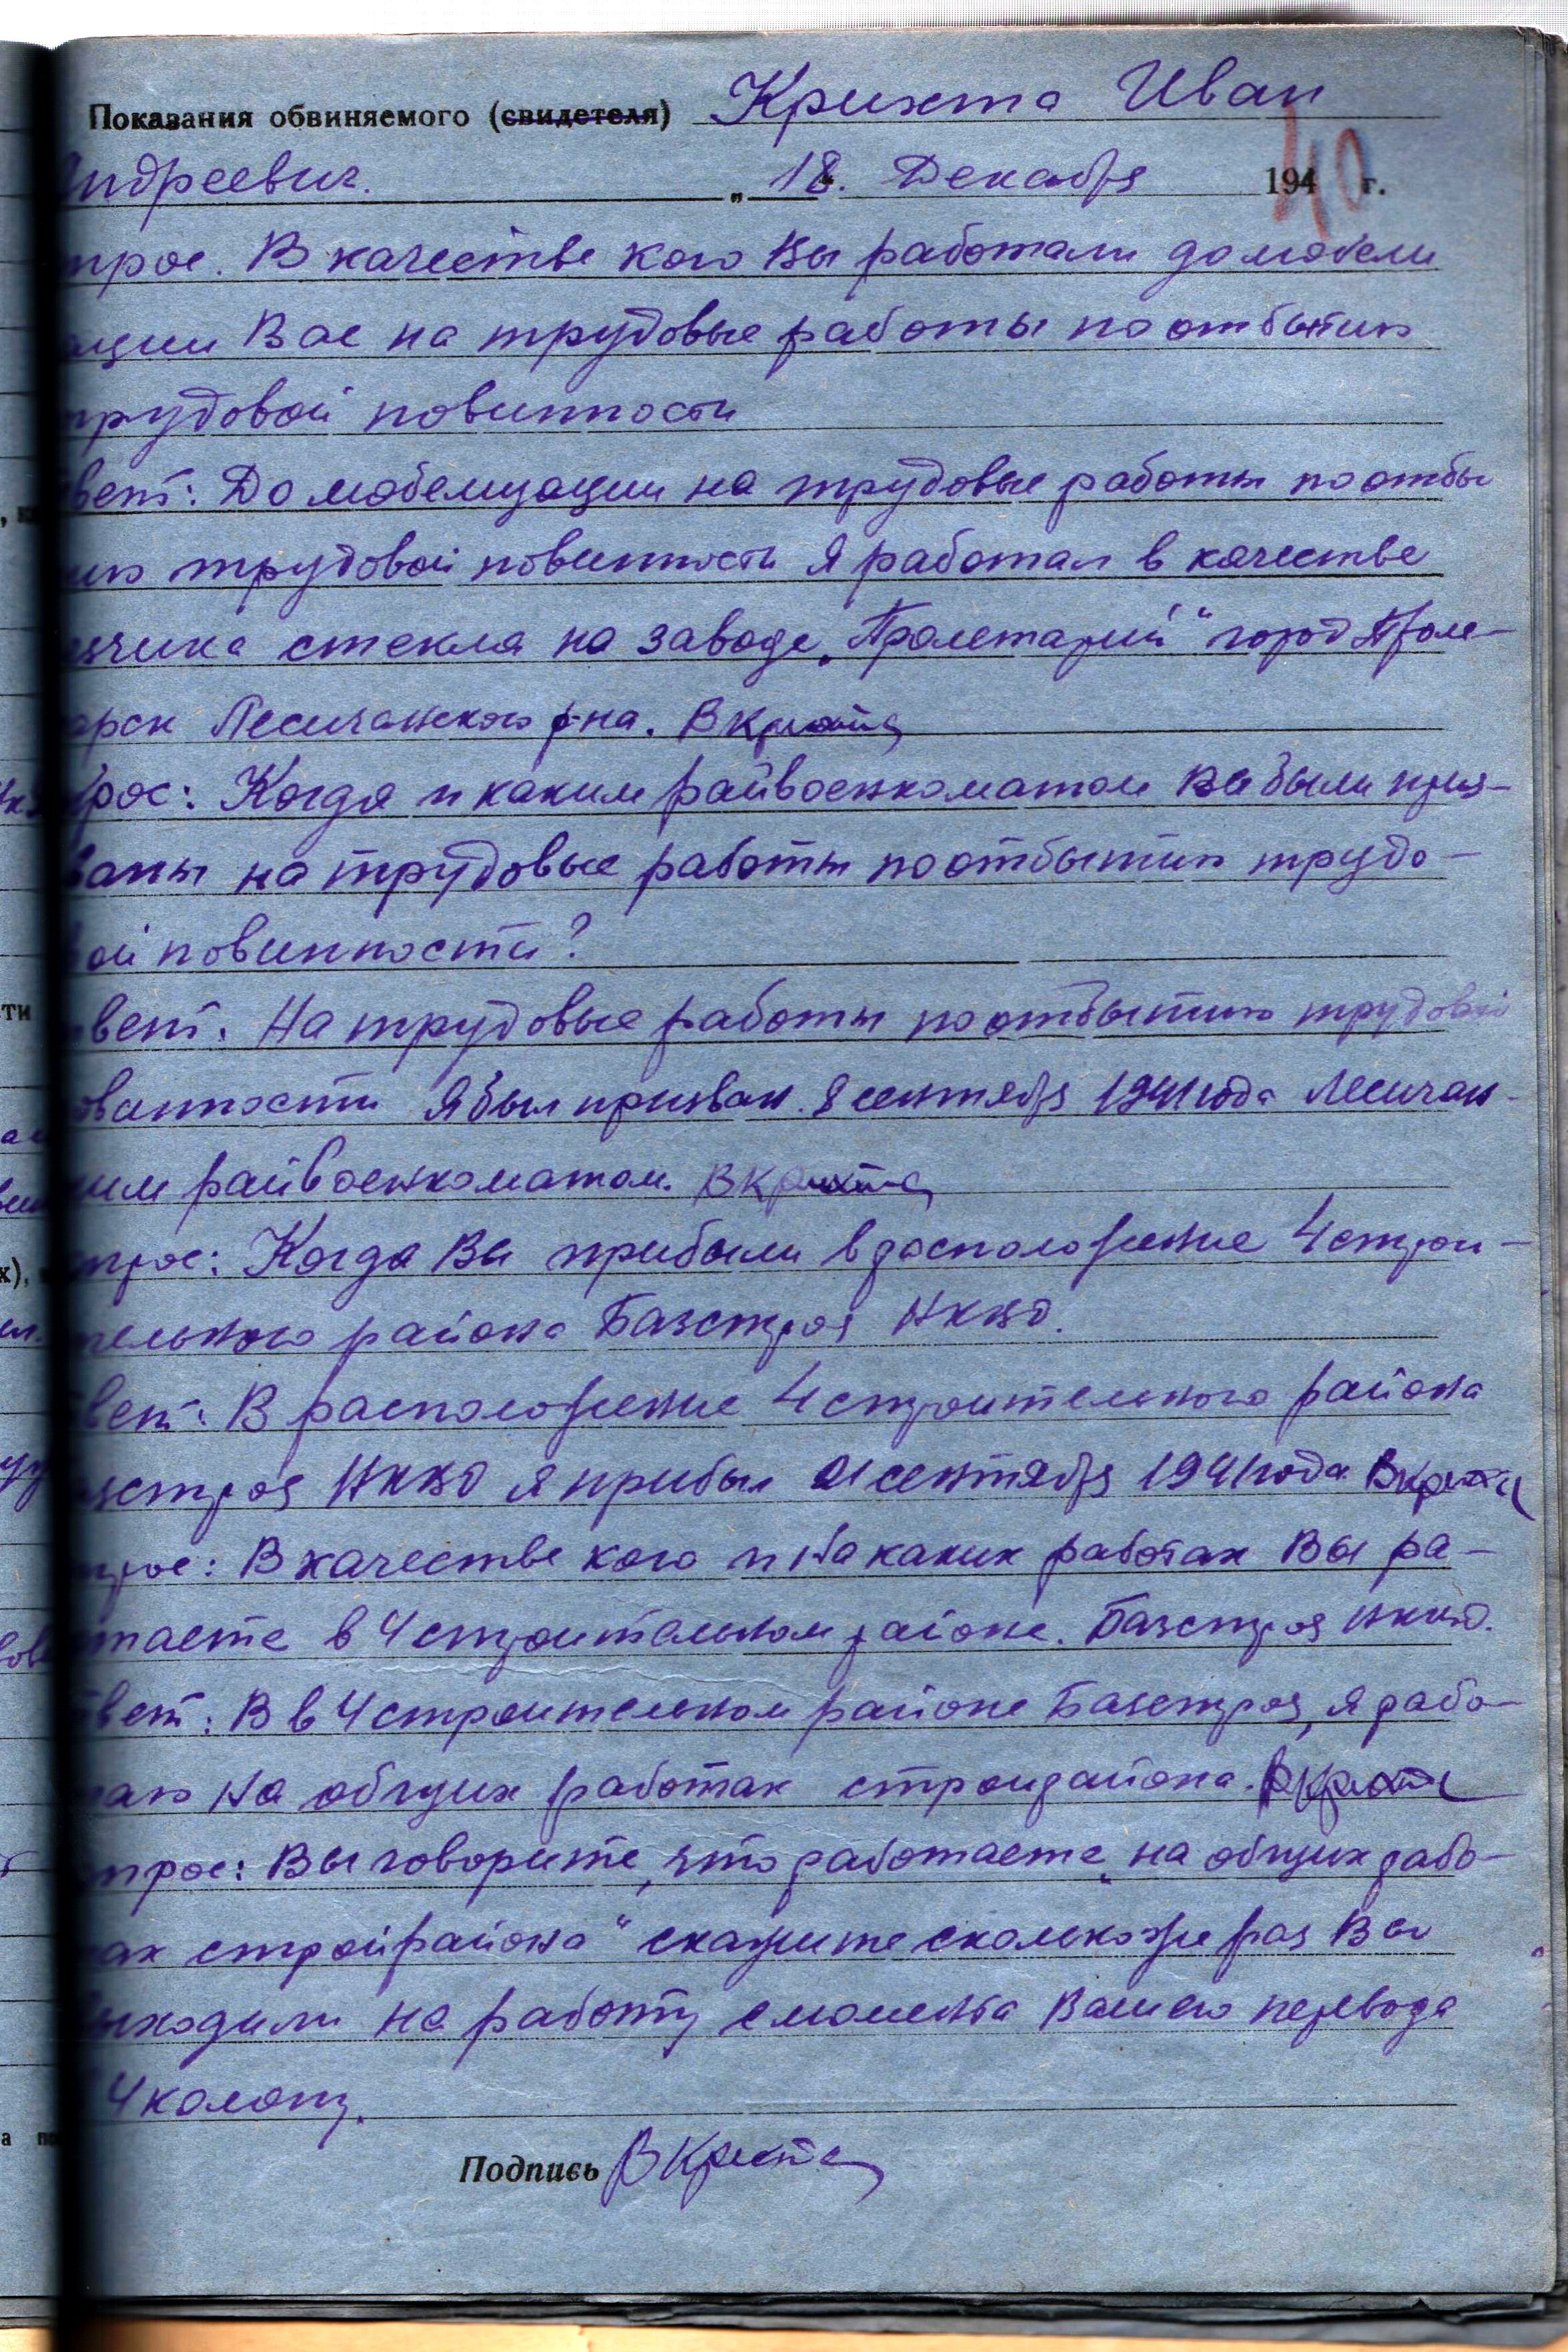 Показания обвиняемого (свидетеля) Крихта Иван
Андреевич. „18." Декабря 194 г.
40
прос. В качестве кого Вы работали до мобели
ации Вас на трудовые работы по отбытию
трудовой повинности
твет: До мобелизации на трудовые работы по отбы
ию трудовой повинности Я работал в качестве
езчика стекла на заводе „Пролетарий" город Проле-
арск Лесичанского р-на. ВКрихта
прос: Когда и каким райвоенкоматом Вы были приз-
ваны на трудовые работы по отбытию трудо-
вой повинности?
твет: На трудовые работы по отбытию трудовой
овинности Я был призван 8 сентября 1941 года Лесичан-
ким райвоенкоматом. ВКрихта
прос: Когда Вы прибыли в расположение 4 строи-
тельного района Базстроя НКВД.
твет: В расположение 4 строительного района
азстроя НКВД я прибыл 21 сентября 1941 года ВКрихта
прос: В качестве кого и на каких работах Вы ра-
таете в 4 строительном районе. Базстроя НКВД.
твет: В в 4 строительном районе Базстроя, я рабо-
таю на общих работах стройрайона. ВКрихта
прос: Вы говорите, что работаете „на общих рабо-
ах стройрайона" скажите сколько же раз Вы
ыходили на работу с момента Вашего перевода
4 колону.
Подпись ВКрихта